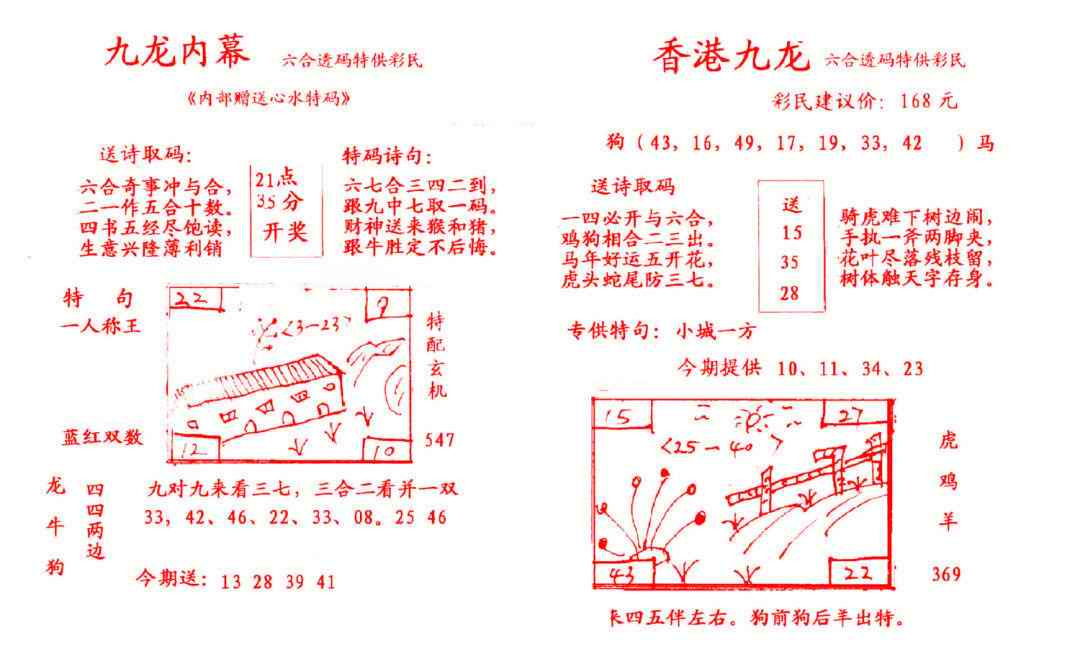 九龙内幕 六合透码特供彩民
《内部赠送心水特码》
送诗取码：
六合奇事冲与合，
二一作五合十数。
四书五经尽饱读，
生意兴隆薄利销
21点
35分
开奖
特码诗句：
六七合三四二到，
跟九中七取一码。
财神送来猴和猪，
跟牛胜定不后悔。
特句
一人称王
蓝红双数
22
9
〈3-23〉
12
10
特配玄机
547
龙牛狗
四四两边
九对九来看三七，三合二看并一双
33，42、46、22、33、08。25 46
今期送：13 28 39 41
香港九龙 六合透码特供彩民
彩民建议价：168元
狗（43，16，49，17，19，33，42 ）马
送诗取码
一四必开与六合，
鸡狗相合二三出。
马年好运五开花，
虎头蛇尾防三七。
送
15
35
28
骑虎难下树边闹，
手执一斧两脚夹，
花叶尽落残枝留，
树体触天字存身。
专供特句：小城一方
今期提供 10、11、34、23
15
27
〈25-40〉
43
22
虎
鸡
羊
369
四五伴左右。狗前狗后羊出特。